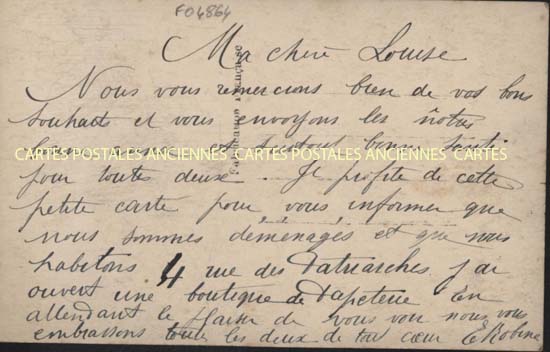 FO4864
Ma chère Louise
Nous vous remercions bien de vos bons
souhaits et vous envoyons les nôtres
bonne et surtout bonne santé
CARTES POSTALES ANCIENNES CARTES POSTALES ANCIENNES CARTES
pour toutes deux. Je profite de cette
petite carte pour vous informer que
nous sommes déménagés et que nous
habitons 4 rue des Patriarches. j'ai
ouvert une boutique de Papeterie En
attendant le plaisir de vous voir nous vous
embrassons toute les deux de tout cœur E Robine